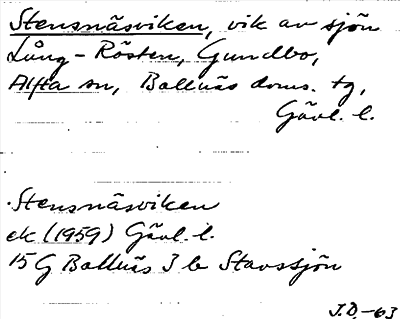 Stensnäsviken, vik av sjön
Lång-Rösten, Gundbo,
Alfta sn, Bollnäs doms. tg,
Gävl. l.
Stensnäsviken
ek (1959) Gävl. l.
15 G Bollnäs 3 b Stavssjön
J.D. -63